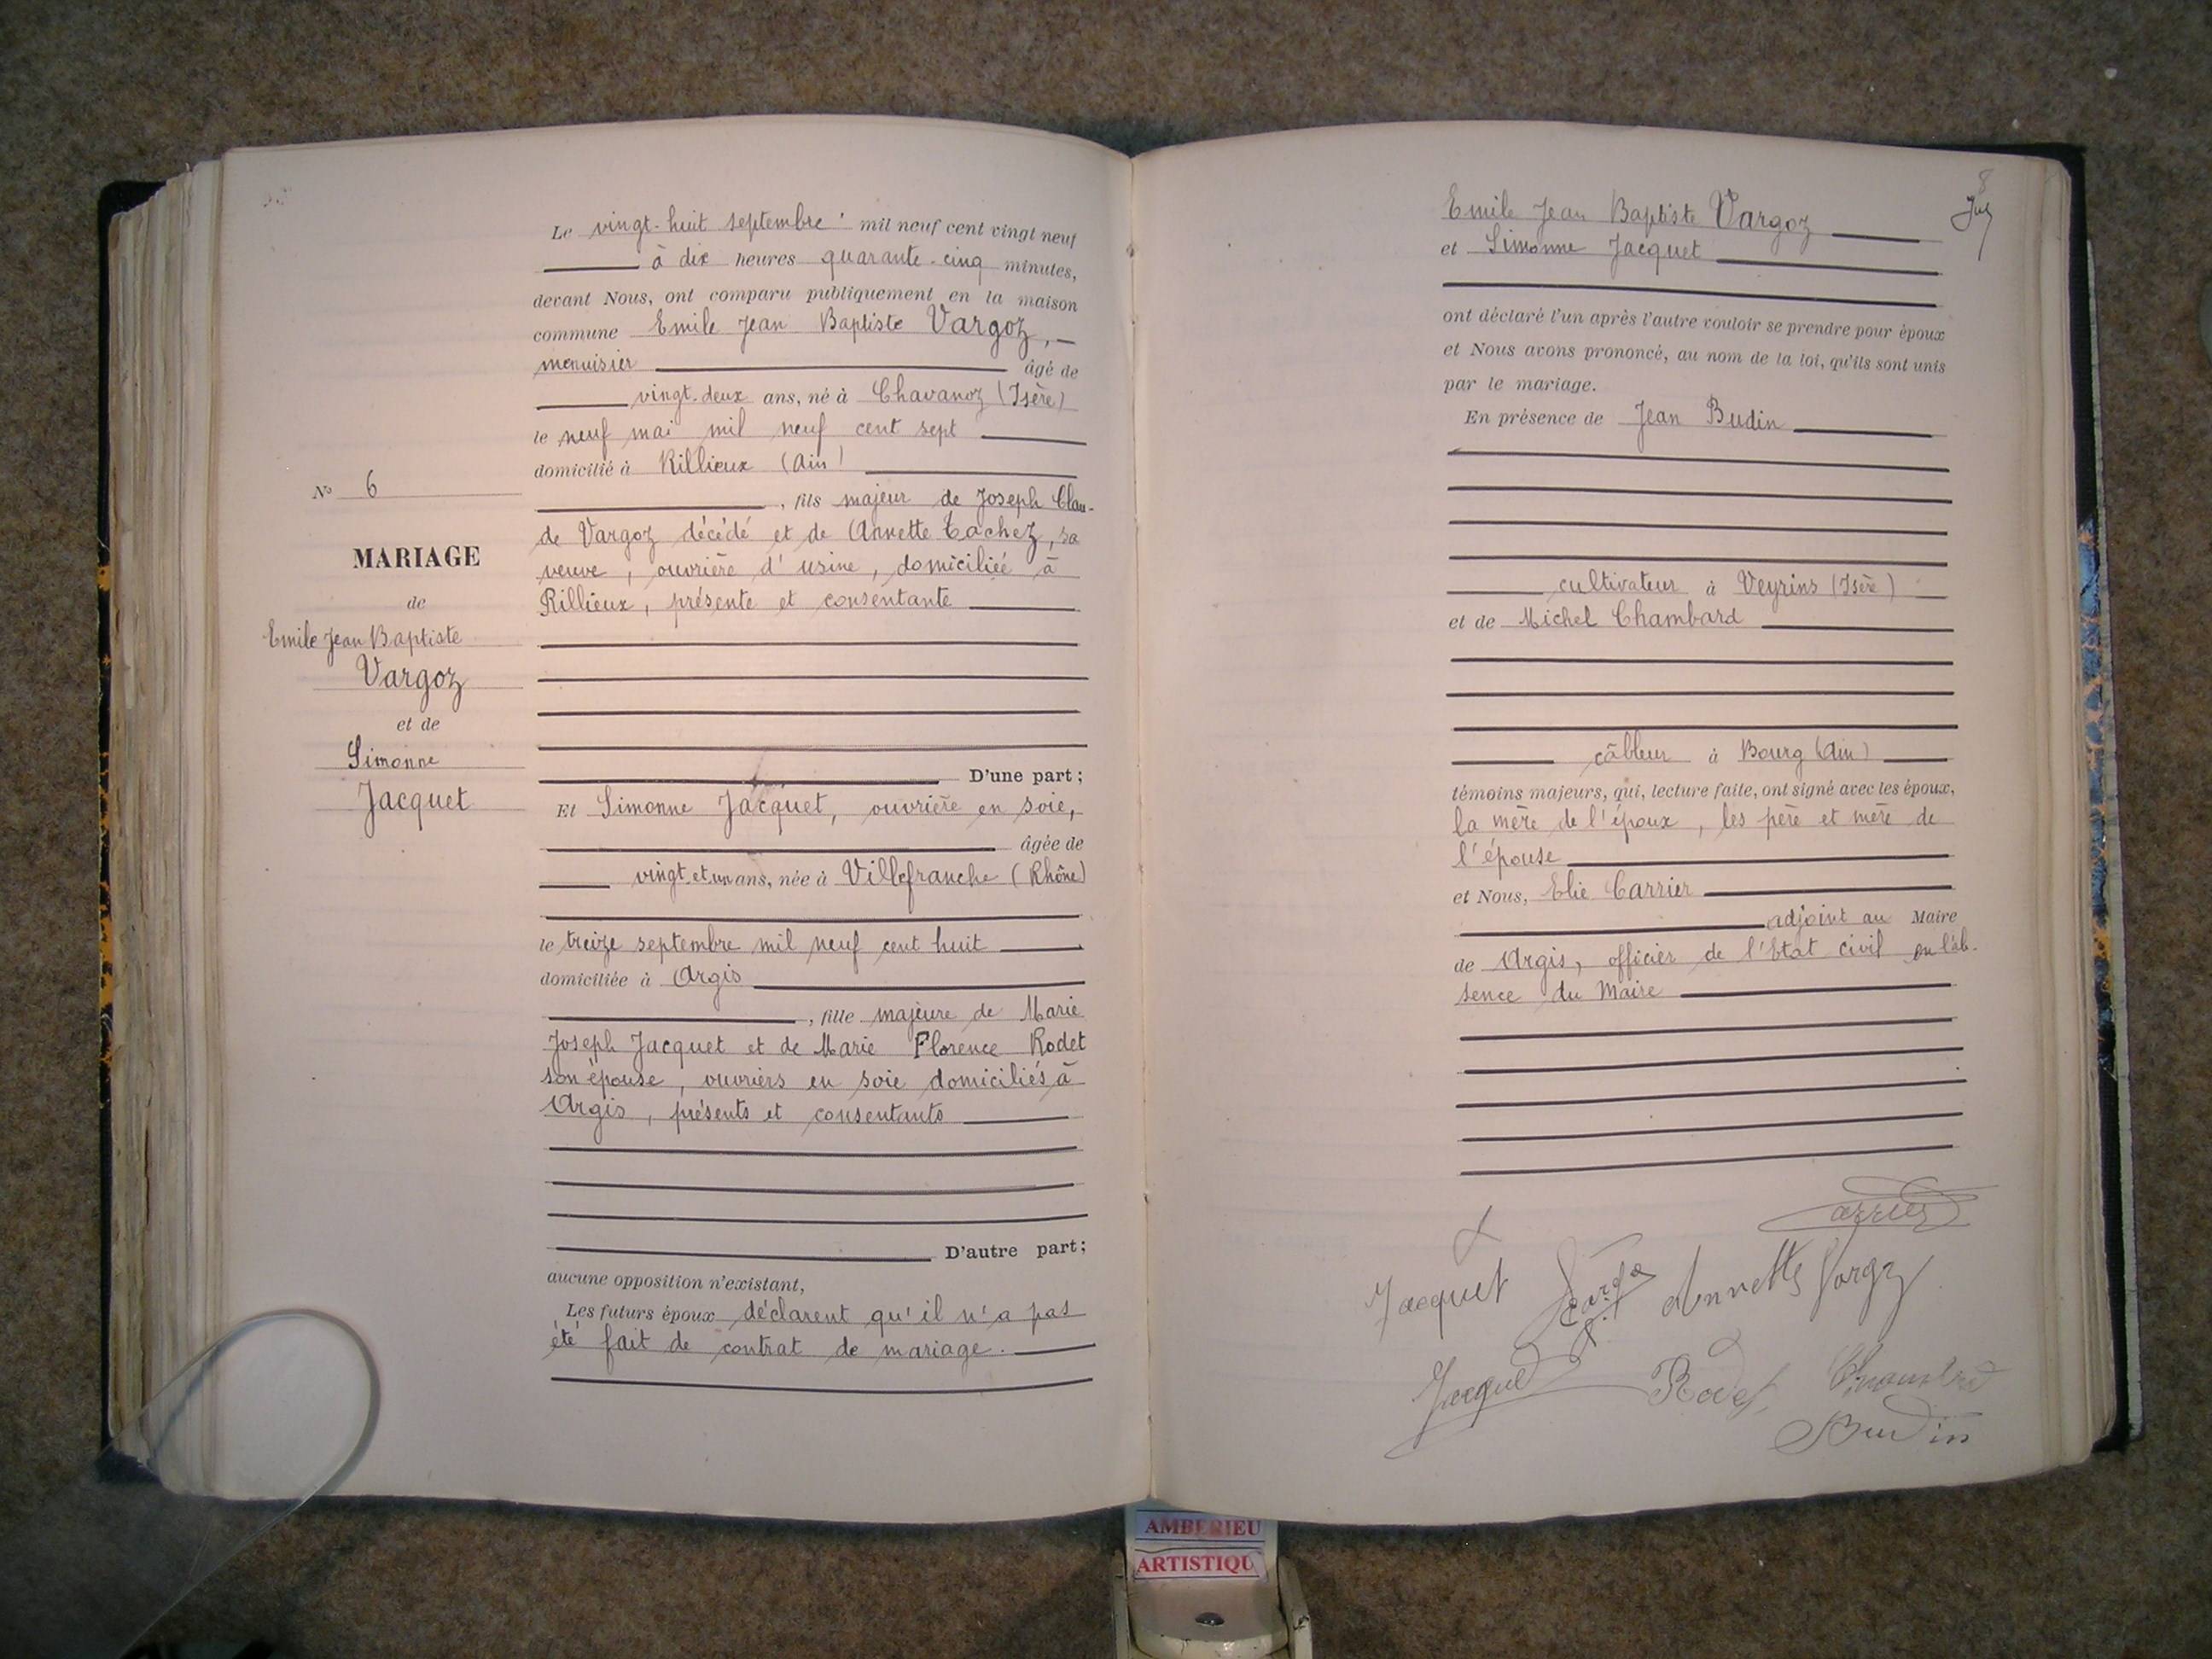 Le vingt-huit septembre mil neuf cent vingt neuf
à dix heures quarante-cinq minutes,
devant Nous, ont comparu publiquement en la maison
commune Emile Jean Baptiste Vargoz,
menuisier âgé de
vingt-deux ans, né à Chavanoz (Isère)
le neuf mai mil neuf cent sept
domicilié à Rillieux (Ain)
, fils majeur de Joseph Clau-
de Vargoz décédé et de Annette Tachez, sa
veuve, ouvrière d'usine, domiciliée à
Rillieux, présente et consentante
D'une part;
Et Simonne Jacquet, ouvrière en soie,
âgée de
vingt et un ans, née à Villefranche (Rhône)
le treize septembre mil neuf cent huit
domiciliée à Argis
, fille majeure de Marie
Joseph Jacquet et de Marie Florence Rodet
son épouse, ouvriers en soie domiciliés à
Argis, présents et consentants
D'autre part;
aucune opposition n'existant,
Les futurs époux déclarent qu'il n'a pas
été fait de contrat de mariage.
No 6
MARIAGE
de
Emile Jean Baptiste
Vargoz
et de
Simonne
Jacquet
8
Emile Jean Baptiste Vargoz
et Simonne Jacquet
ont déclaré l'un après l'autre vouloir se prendre pour époux
et Nous avons prononcé, au nom de la loi, qu'ils sont unis
par le mariage.
En présence de Jean Budin
cultivateur à Veyrins (Isère)
et de Michel Chambard
câbleur à Bourg (Ain)
témoins majeurs, qui, lecture faite, ont signé avec les époux,
la mère de l'époux, les père et mère de
l'épouse
et Nous, Elie Carrier
adjoint au Maire
de Argis, officier de l'Etat civil en l'ab-
sence du Maire
Carrier
Jacquet Annette Vargoz
Jacquet Rodet Chambard
Budin
AMBERIEU
ARTISTIQU